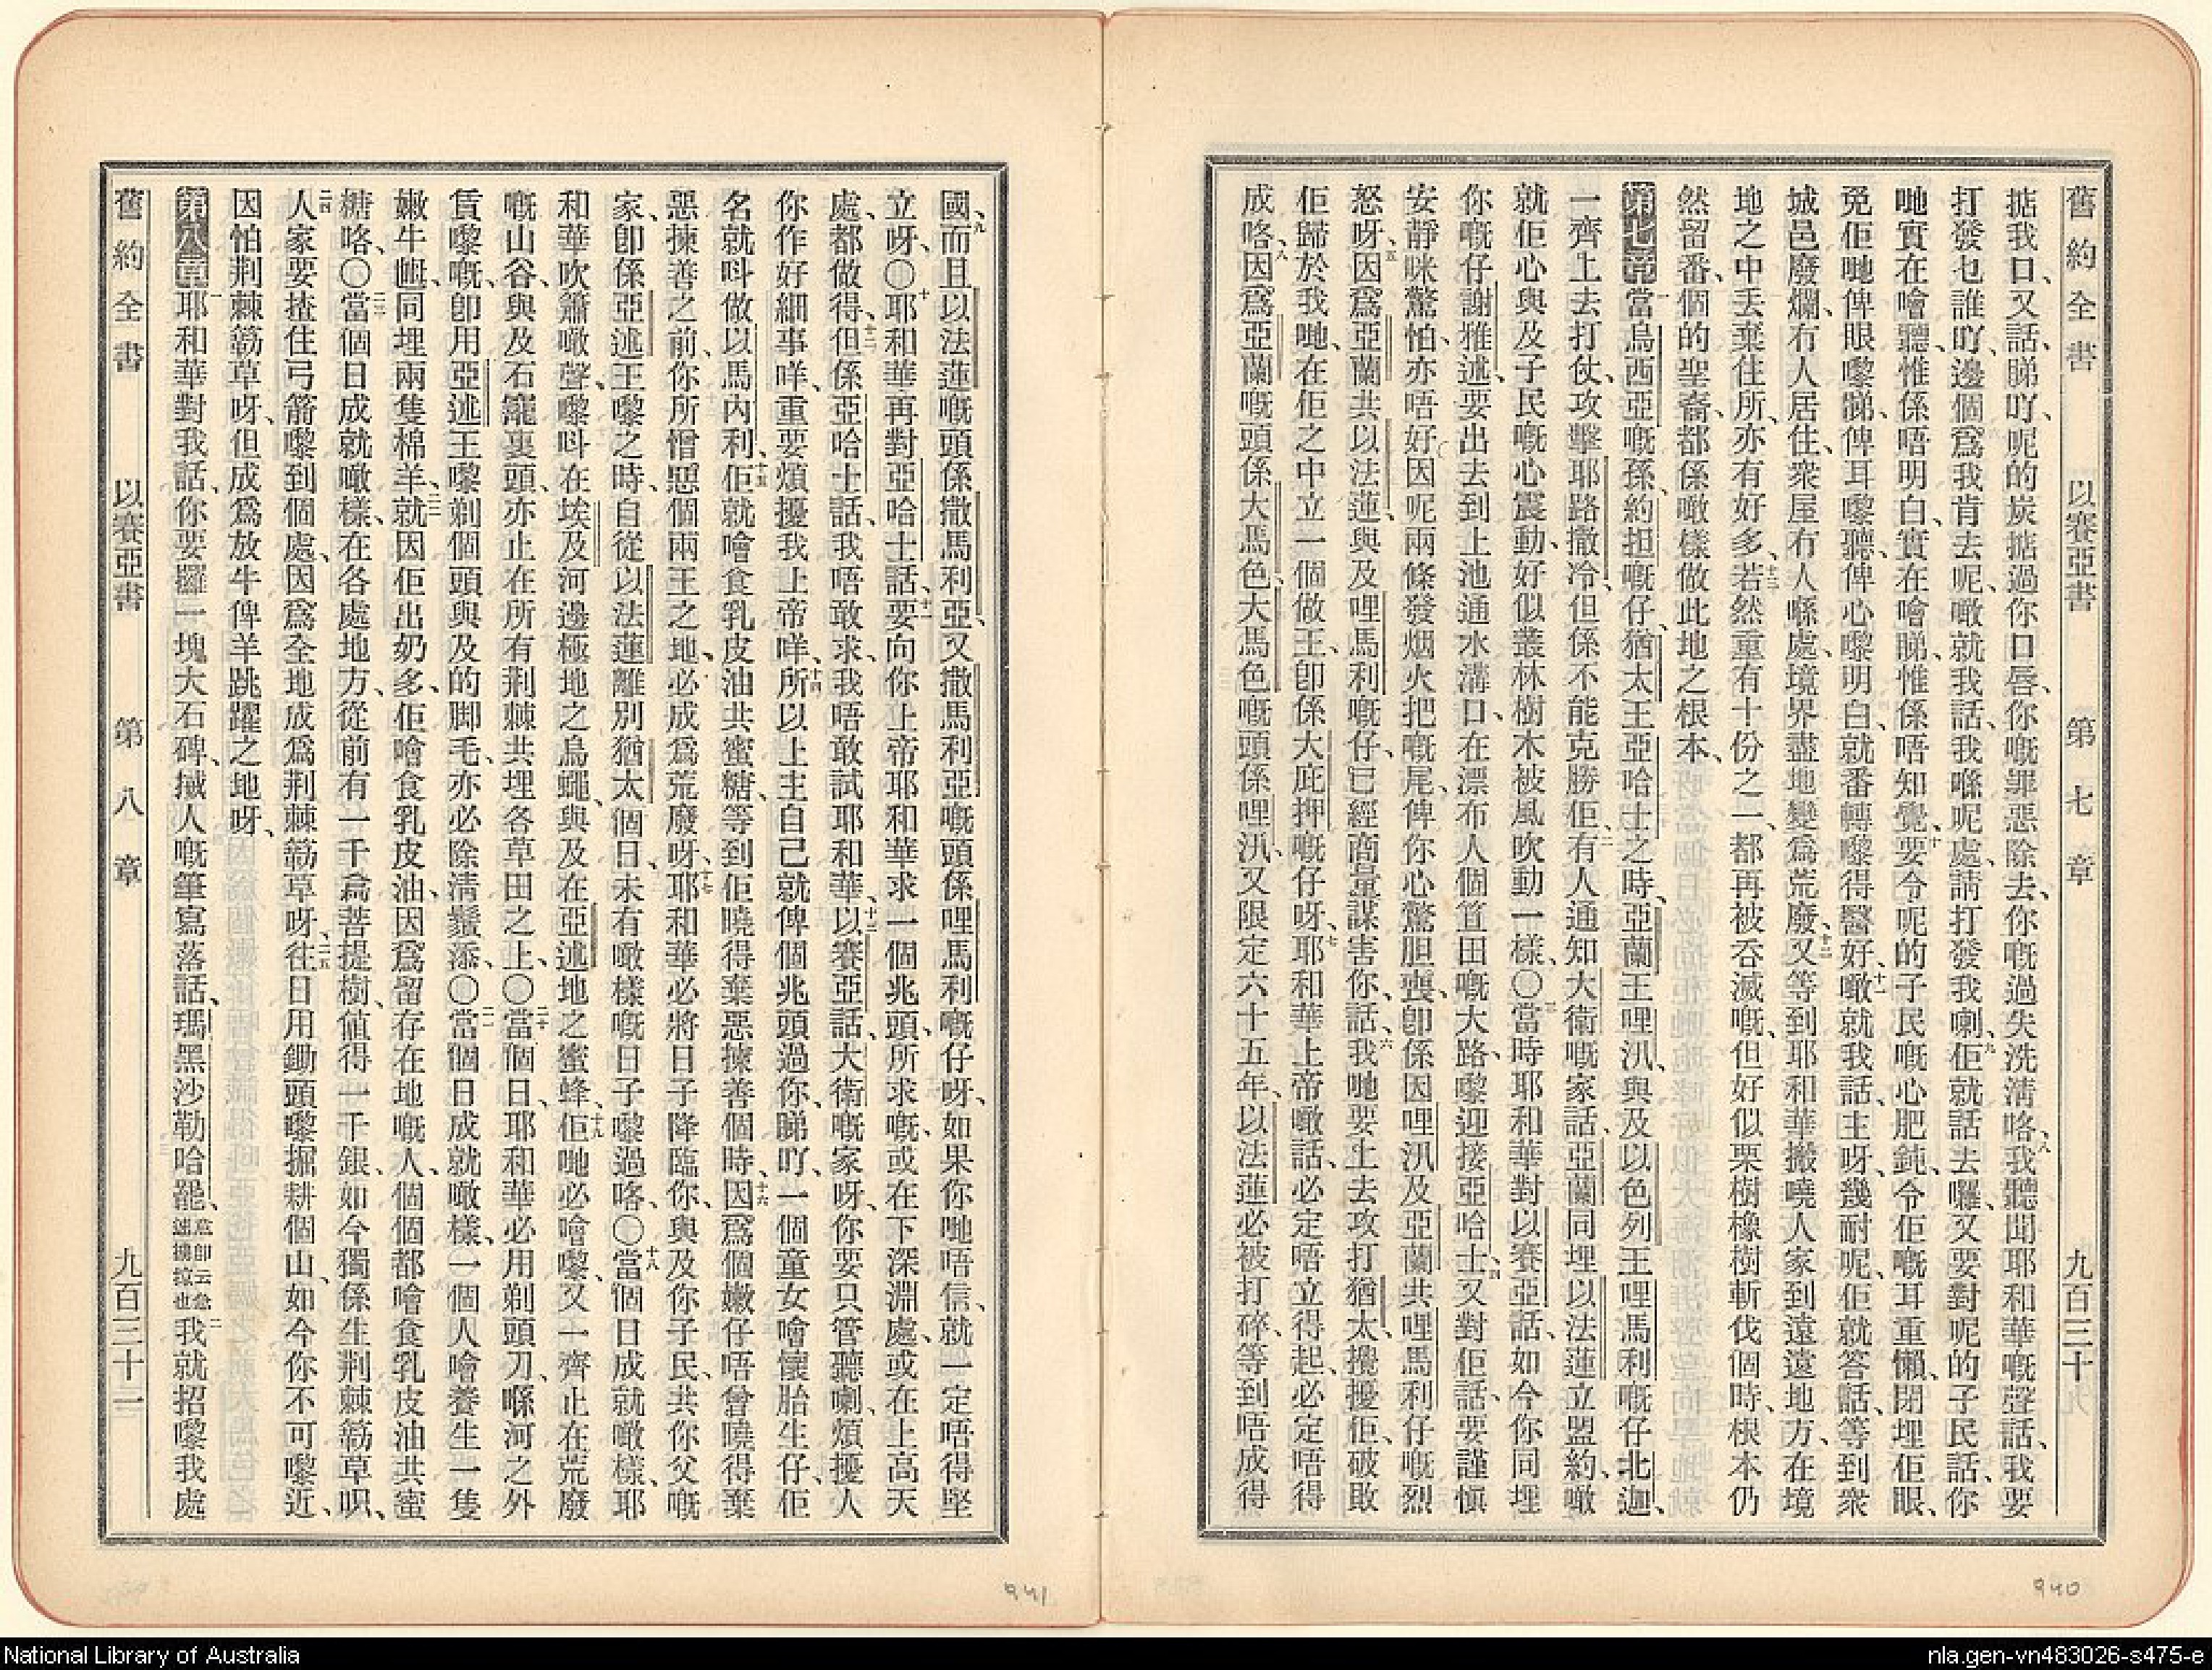 舊約全書 以賽亞書 第七章 九百三十
掂我口、又話、睇吖、呢的炭掂過你口唇、你嘅罪惡除去、你嘅過失洗淸咯、八我聽聞耶和華嘅聲話、我要
打發乜誰吖、邊個爲我肯去呢、噉就我話、我喺呢處、請打發我喇、九佢就話去囉、又要對呢的子民話、你
哋實在噲聽、惟係唔明白、實在噲睇、惟係唔知覺、十要令呢的子民嘅心肥鈍、令佢嘅耳重懶、閉埋佢眼、
免佢哋俾眼嚟睇、俾耳嚟聽、俾心嚟明白、就番轉嚟得醫好、十一噉就我話、主呀、幾耐呢、佢就答話、等到衆
城邑廢爛、冇人居住、衆屋冇人喺處、境界盡地變爲荒廢、十二又等到耶和華搬曉人家到遠遠地方、在境
地之中丟棄住所、亦有好多、十三若然重有十份之一、都再被吞滅嘅、但好似栗樹橡樹斬伐個時、根本仍
然留番、個的聖裔、都係噉樣做此地之根本、
第七章 一當烏西亞嘅孫、約担嘅仔、猶太王亞哈士之時、亞蘭王哩汛、與及以色列王哩馬利嘅仔北迦、
一齊上去打仗、攻擊耶路撒冷、但係不能克勝佢、二有人通知大衛嘅家話、亞蘭同埋以法蓮立盟約、噉
就佢心與及子民嘅心震動、好似叢林樹木被風吹動一樣、〇三當時耶和華對以賽亞話、如今你同埋
你嘅仔謝雅述、要出去到上池通水溝口、在漂布人個笪田嘅大路、嚟迎接亞哈士、四又對佢話、要謹愼
安靜咪驚怕、亦唔好因呢兩條發烟火把嘅尾、俾你心驚胆喪、卽係因哩汛及亞蘭共哩馬利仔嘅烈
怒呀、五因爲亞蘭共以法蓮、與及哩馬利嘅仔、已經商量謀害你、話、六我哋要上去攻打猶太、攪擾佢、破敗
佢歸於我哋、在佢之中立一個做王、卽係大庇押嘅仔呀、七耶和華上帝噉話、必定唔立得起、必定唔得
成咯、八因爲亞蘭嘅頭係大馬色、大馬色嘅頭係哩汛、又限定六十五年、以法蓮必被打碎、等到唔成得
國、九而且以法蓮嘅頭係撒馬利亞、又撒馬利亞嘅頭係哩馬利嘅仔呀、如果你哋唔信、就一定唔得堅
立呀、〇十耶和華再對亞哈士話、十一要向你上帝耶和華求一個兆頭、所求嘅、或在下深淵處、或在上高天
處、都做得、十二但係亞哈士話、我唔敢求、我唔敢試耶和華、十三以賽亞話、大衛嘅家呀、你要只管聽喇、煩擾人
你作好細事咩、重要煩擾我上帝咩、十四所以上主自己就俾個兆頭過你、睇吖、一個童女噲懷胎生仔、佢
名就呌做以馬內利、十五佢就噲食乳皮油共蜜糖、等到佢曉得棄惡揀善個時、十六因爲個嫩仔唔曾曉得棄
惡揀善之前、你所憎惡個兩王之地、必成爲荒廢呀、十七耶和華必將日子降臨你、與及你子民、共你父嘅
家、卽係亞述王嚟之時、自從以法蓮離別猶太個日、未有噉樣嘅日子嚟過咯、〇十八當個日成就噉樣、耶
和華吹簫噉聲、嚟呌在埃及河邊極地之烏蠅、與及在亞述地之蜜蜂、十九佢哋必噲嚟、又一齊止在荒廢
嘅山谷、與及石窿裏頭、亦止在所有荆棘共埋各草田之上、〇二十當個日、耶和華必用剃頭刀、喺河之外
賃嚟嘅、卽用亞述王嚟剃個頭與及的脚毛、亦必除淸鬚添、〇二一當個日成就噉樣、一個人噲養生一隻
嫩牛乸、同埋兩隻棉羊、二二就因佢出奶多、佢噲食乳皮油、因爲留存在地嘅人、個個都噲食乳皮油共蜜
糖咯、〇二三當個日成就噉樣、在各處地方、從前有一千樖菩提樹、値得一千銀、如今獨係生荆棘簕草呮、
二四人家要揸住弓箭嚟到個處、因爲全地成爲荆棘簕草呀、二五往日用鋤頭嚟掘耕個山、如今你不可嚟近、
因怕荆棘簕草呀、但成爲放牛俾羊跳躍之地呀、
第八章 一耶和華對我話、你要攞一塊大石碑、搣人嘅筆寫落話、瑪黑沙勒哈罷、意卽云急速擄掠也二我就招嚟我處
舊約全書 以賽亞書 第八章 九百三十一
941
940
National Library of Australia
nla.gen-vn483026-s475-e